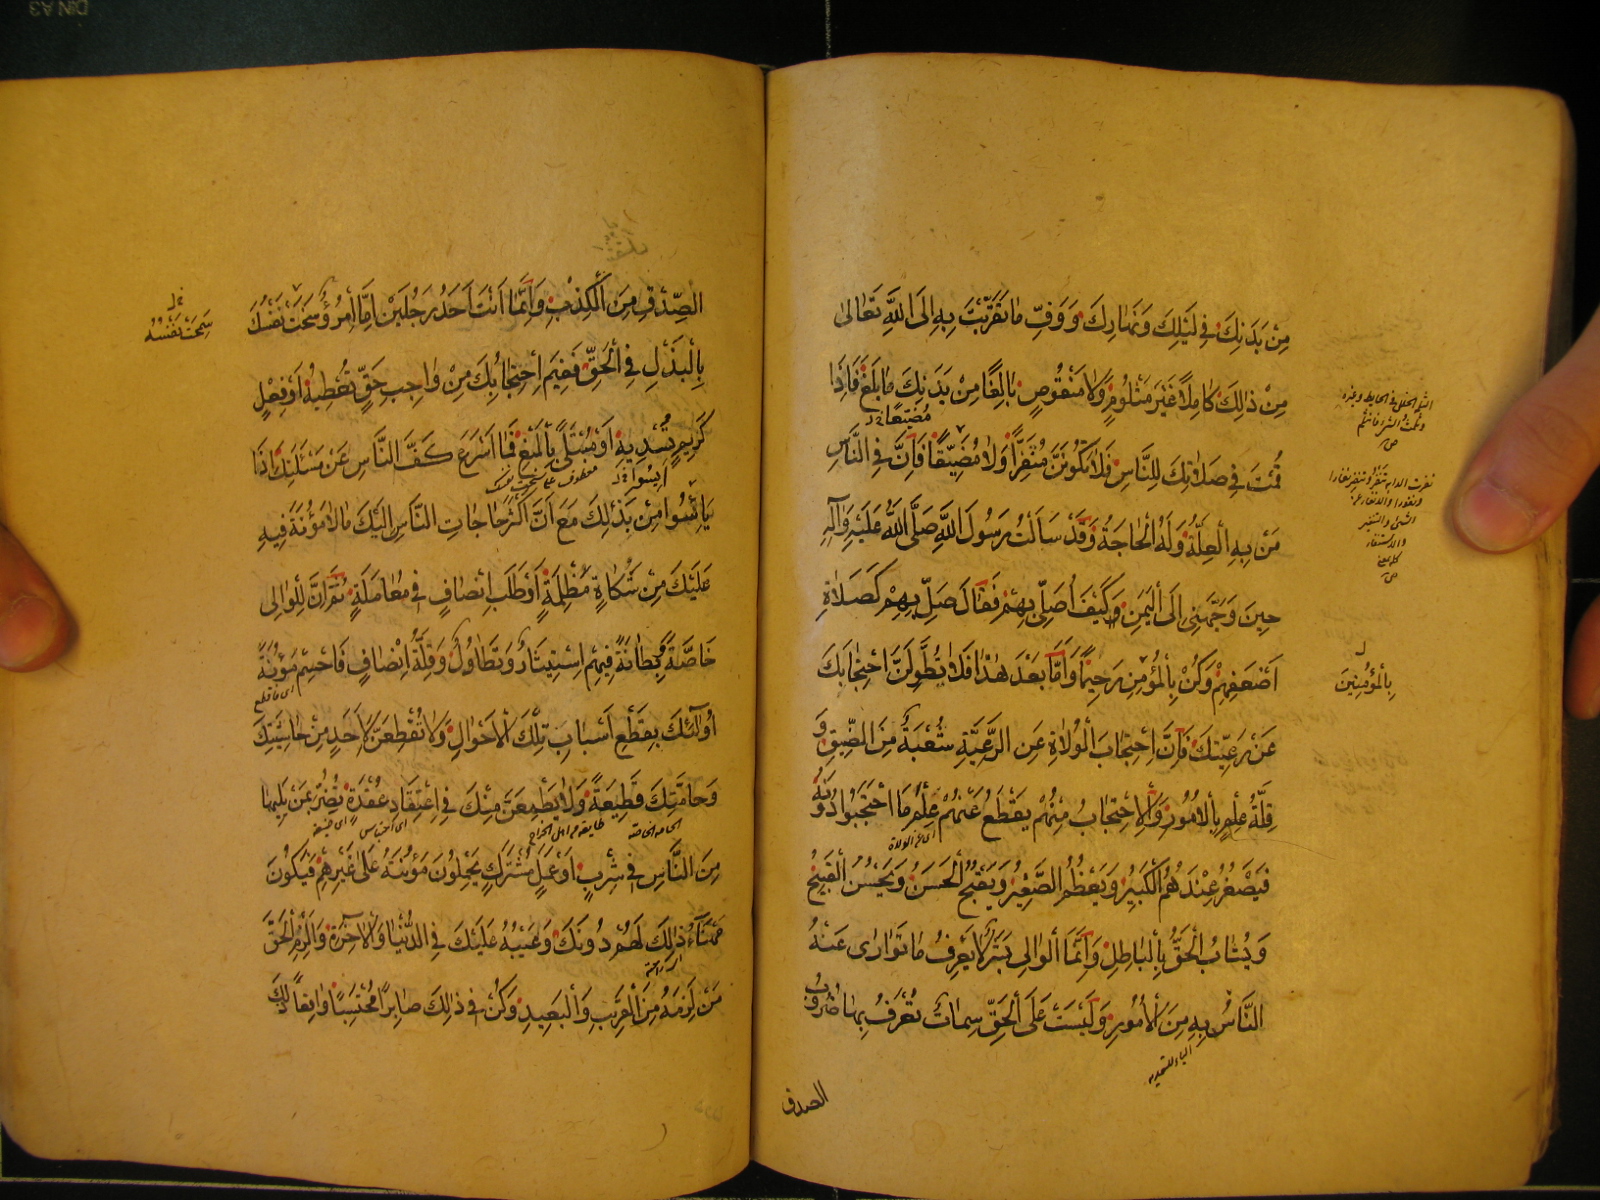 مِنْ بَدَنِكَ فِي لَيْلِكَ وَنَهَارِكَ وَوَفِّ مَا تَقَرَّبْتَ بِهِ إِلَى اللَّهِ تَعَالَى
مِنْ ذَلِكَ كَامِلًا غَيْرَ مَثْلُومٍ وَلَا مَنْقُوصٍ بَالِغًا مِنْ بَدَنِكَ مَا بَلَغَ فَإِذَا
مُضَيِّعًا
قُمْتَ فِي صَلَاتِكَ لِلنَّاسِ فَلَا تَكُونَنَّ مُنَفِّرًا وَلَا مُضَيِّقًا فَإِنَّ فِي النَّاسِ
مَنْ بِهِ الْعِلَّةُ وَلَهُ الْحَاجَةُ وَقَدْ سَأَلْتُ رَسُولَ اللَّهِ صَلَّى اللَّهُ عَلَيْهِ وَآلِهِ
حِينَ وَجَّهَنِي إِلَى الْيَمَنِ وَكَيْفَ أُصَلِّي بِهِمْ فَقَالَ صَلِّ بِهِمْ كَصَلَاةِ
أَضْعَفِهِمْ وَكُنْ بِالْمُؤْمِنِ رَحِيمًا وَأَمَّا بَعْدَ هَذَا فَلَا تُطَوِّلَنَّ احْتِجَابَكَ
بِالْمُؤْمِنِينَ
عَنْ رَعِيَّتِكَ فَإِنَّ احْتِجَابَ الْوُلَاةِ عَنِ الرَّعِيَّةِ شُعْبَةٌ مِنَ الضِّيقِ وَ
قِلَّةُ عِلْمٍ بِالْأُمُورِ وَالِاحْتِجَابُ مِنْهُمْ يَقْطَعُ عَنْهُمْ عِلْمَ مَا احْتَجَبُوا دُونَهُ
فَيَصْغُرُ عِنْدَهُمُ الْكَبِيرُ وَيَعْظُمُ الصَّغِيرُ وَيَقْبُحُ الْحَسَنُ وَيَحْسُنُ الْقَبِيحُ
وَيُشَابُ الْحَقُّ بِالْبَاطِلِ وَإِنَّمَا الْوَالِي بَشَرٌ لَا يَعْرِفُ مَا تَوَارَى عَنْهُ
النَّاسُ بِهِ مِنَ الْأُمُورِ وَلَيْسَتْ عَلَى الْحَقِّ سِمَاتٌ تُعْرَفُ بِهَا ضُرُوبُ
الصدق
الصِّدْقِ مِنَ الْكَذِبِ وَإِنَّمَا أَنْتَ أَحَدُ رَجُلَيْنِ إِمَّا امْرُؤٌ سَخَتْ نَفْسُكَ
سَخَتْ نَفْسُهُ
بِالْبَذْلِ فِي الْحَقِّ فَفِيمَ احْتِجَابُكَ مِنْ وَاجِبِ حَقٍّ تُعْطِيهِ أَوْ فِعْلٍ
كَرِيمٍ تُسْدِيهِ أَوْ مُبْتَلًى بِالْمَنْعِ فَمَا أَسْرَعَ كَفَّ النَّاسِ عَنْ مَسْأَلَتِكَ إِذَا
أَيِسُوا
يَأْئَسُوا مِنْ بَذْلِكَ مَعَ أَنَّ أَكْثَرَ حَاجَاتِ النَّاسِ إِلَيْكَ مَا لَا مَؤُنَةَ فِيهِ
عَلَيْكَ مِنْ شَكَاةٍ مَظْلِمَةٍ أَوْ طَلَبِ إِنْصَافٍ فِي مُعَامَلَةٍ ثُمَّ إِنَّ لِلْوَالِي
خَاصَّةً وَبِطَانَةً فِيهِمُ اسْتِيثَارٌ وَتَطَاوُلٌ وَقِلَّةُ إِنْصَافٍ فَاحْسِمْ مَؤُنَةَ
أُولَئِكَ بِقَطْعِ أَسْبَابِ تِلْكَ الْأَحْوَالِ وَلَا تُقْطِعَنَّ لِأَحَدٍ مِنْ حَاشِيَتِكَ
وَحَامَّتِكَ قَطِيعَةً وَلَا يَطْمَعَنَّ مِنْكَ فِي اعْتِقَادِ عُقْدَةٍ تُضِرُّ بِمَنْ يَلِيهَا
مِنَ النَّاسِ فِي شِرْبٍ أَوْ عَمَلٍ مُشْتَرَكٍ يَحْمِلُونَ مَؤُنَتَهُ عَلَى غَيْرِهِمْ فَيَكُونَ
مَهْنَأُ ذَلِكَ لَهُمْ دُونَكَ وَعَيْبُهُ عَلَيْكَ فِي الدُّنْيَا وَالْآخِرَةِ وَأَلْزِمِ الْحَقَّ
مَنْ لَزِمَهُ مِنَ الْقَرِيبِ وَالْبَعِيدِ وَكُنْ فِي ذَلِكَ صَابِرًا مُحْتَسِبًا وَاقِعًا ذَلِكَ